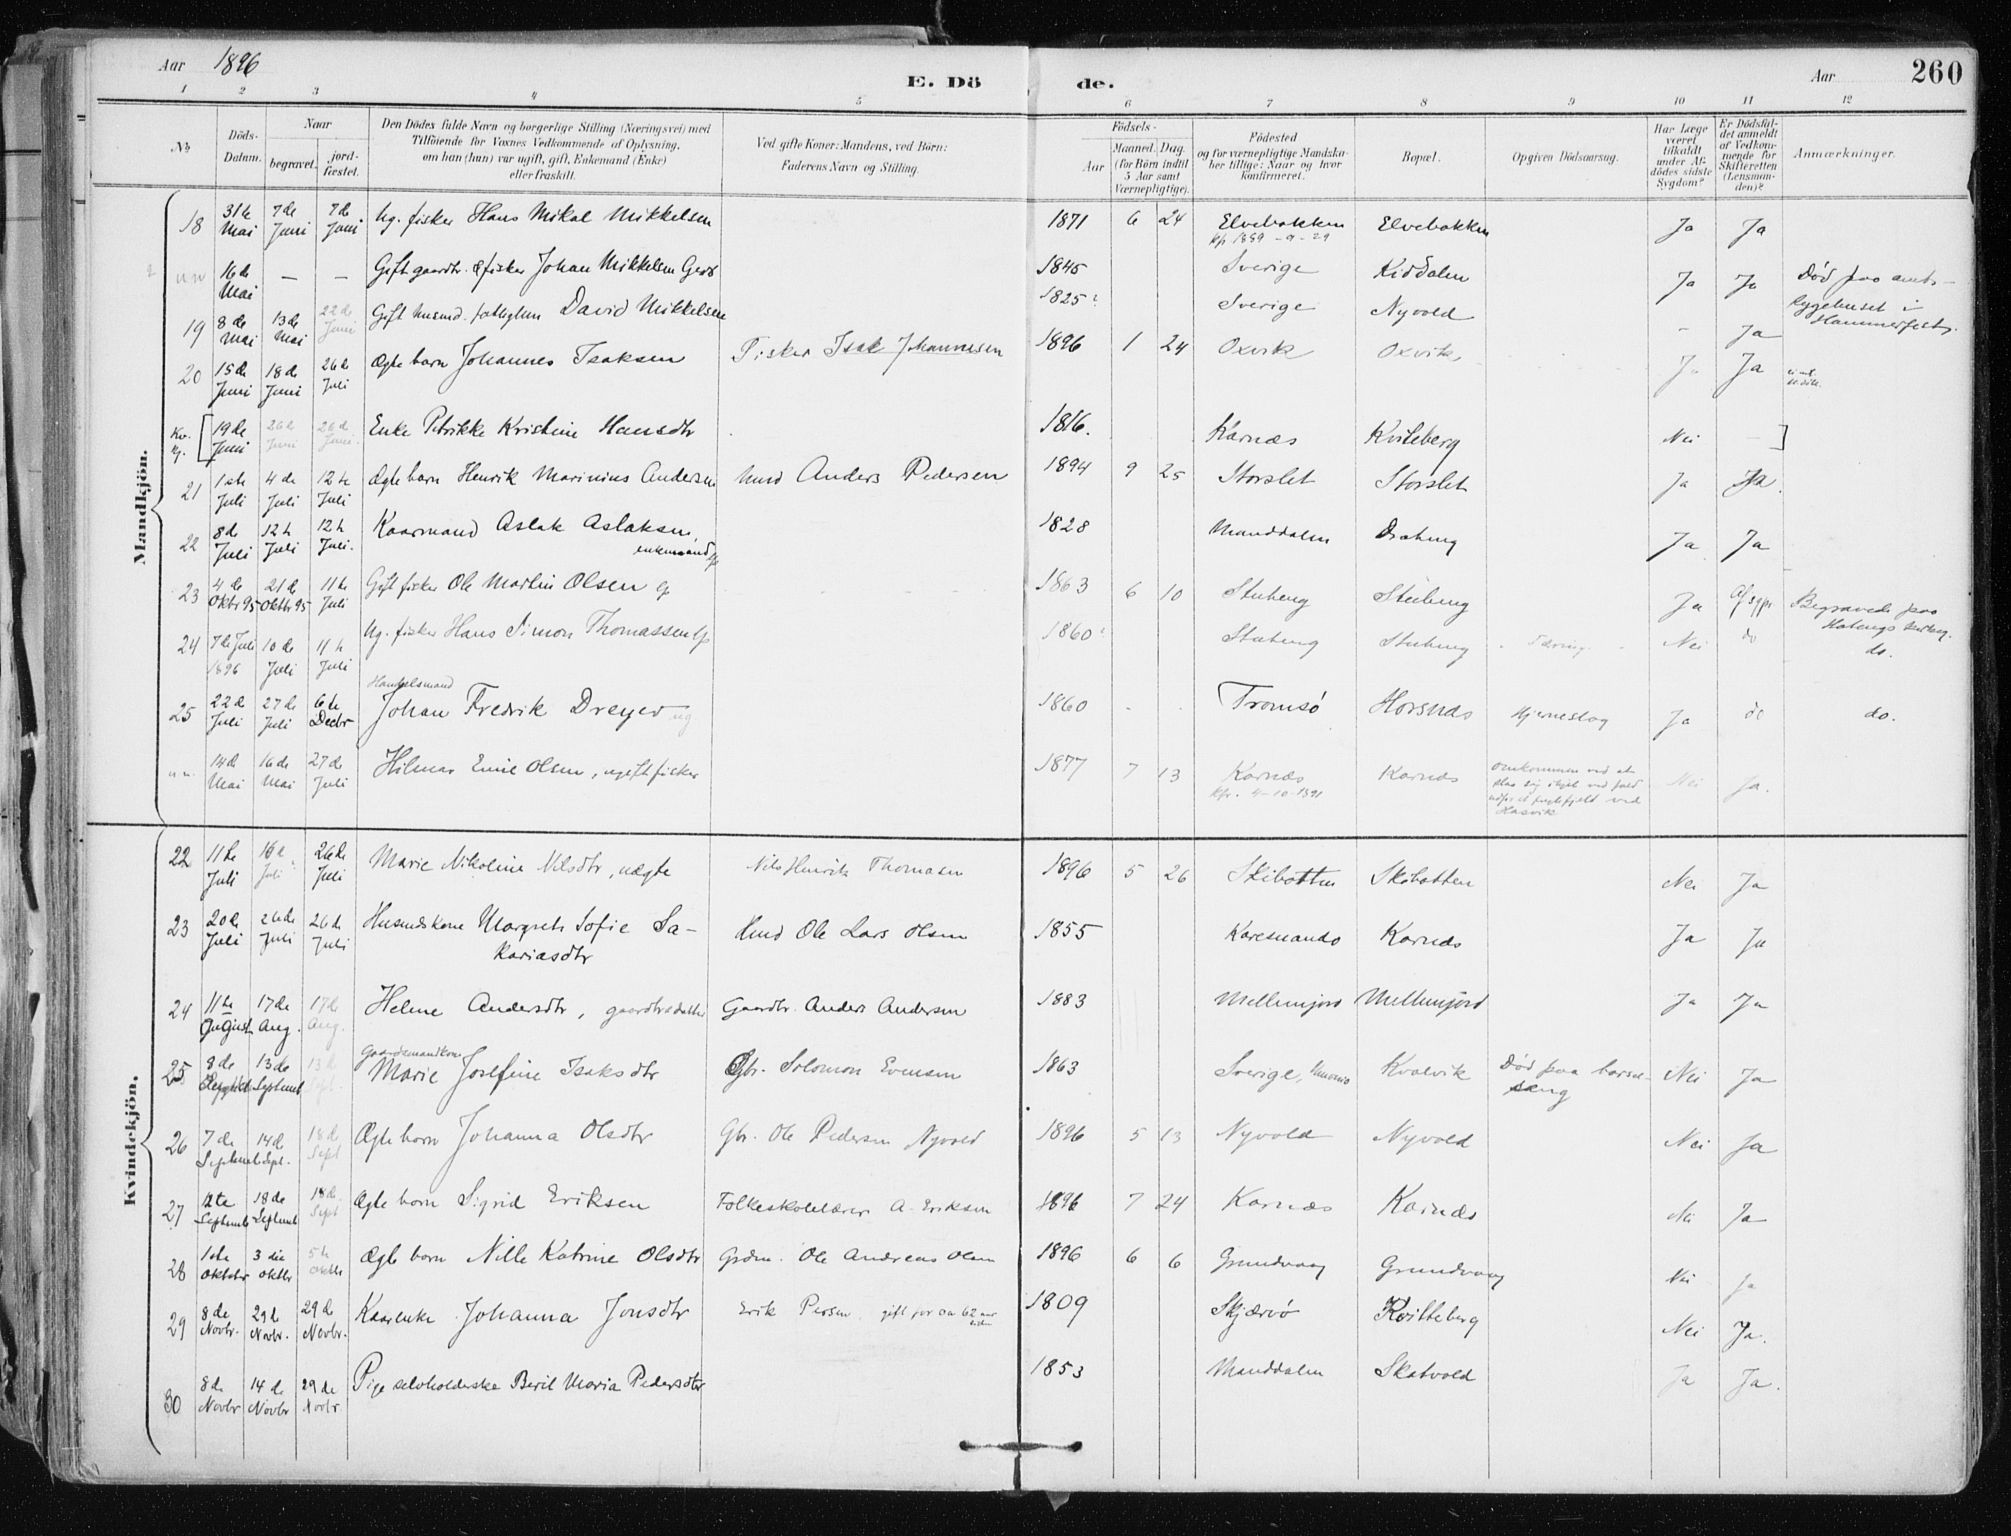 Aar 1896 E. Dö de. Aar 260
1 2 3 4 5 6 7 8 9 10 11 12
No. Döds-Datum. Naar begravet. jord-fæstet. Den Dödes fulde Navn og borgerlige Stilling (Næringsvei) med Tilföiende for Voxnes Vedkommende af Oplysning, om han (hun) var ugift, gift, Enkemand (Enke) eller fraskilt. Ved gifte Koner: Mandens, ved Börn: Faderens Navn og Stilling. Födsels- Aar Maaned. Dag. (for Börn indtil 5 Aar samt Værnepligtige). Födested og for værnepligtige Mandskaber tillige: Naar og hvor Konfirmeret. Bopæl. Opgiven Dödsaarsag. Har Læge været tilkaldt under Afdödes sidste Sygdom? Er Dödsfaldet anmeldt af Vedkommende for Skifteretten (Lensmanden)? Anmærkninger.
Mandkjön.
18 31te Mai 7de Juni 7de Juni Ug. fisker Hans Mikal Mikkelsen 1871 6 24 Elvebakken Elvebakken Ja Ja
16de Mai — — Gift gaardbr. & fisker Johan Mikkelsen 1845 Sverige Kiddalen Ja Ja Død paa amts-
sygehuset i Hammerfest.
19 8de Mai 13de Mai 22de Juni Gift husmd. David Mikkelsen 1825? Sverige Nyvold - Ja
20 15de Juni 18de Juni 26de Juli Ægte barn Johannes Isaksen Fisker Isak Johannesen 1896 1 24 Oxvik Oxvik Ja Ja
Kv. kj. [ 19de Juni 26de Juni 26de Juni Enke Petrikke Kristine Hansdtr 1816. Karnæs Kviteberg Nei — ]
21 1ste Juli 4de Juli 12te Juli Ægte barn Henrik Marinius Andersen Husmd Anders Pedersen 1894 9 25 Storslet Storslet Ja Ja.
22 8de Juli 12te Juli 12te Juli. Kaarmand Aslak Aslaksen, enkemand 1828 Manddalen Ja Ja
23 4de Oktbr 95 21de Oktbr 95 11te Juli Gift fisker Ole Martin Olsen 1863 6 10 Stubeng Stubeng Ja Begravede paa
24 7de Juli 1896 10de Juli 11te Juli Ug. fisker Hans Simon Thomassen 1860? Stubeng Stubeng Tæring Nei do do.
25 22de Juli 27de Juli 6te Decbr Handelsmand Johan Fredrik Dreyer ug 1860 Tromsö Horsnæs Hjerneslag Ja do do.
14de Mai 16de Mai 27de Juli Hilmar Emil Olsen, ugift fisker 1877 7 13 Karnæs kfr. 4-10-1891 Karnæs omkommen ved at slaa sig ihjel ved fald Hasvik Nei Ja.
Kvindekjön.
22 11te Juli 16de Juli 26de Juli Marie Nikoline Nilsdtr, uægte Nils Henrik Thomasen 1896 5 26 Skibotten Skibotten Nei Ja
23 20de Juli 26de Juli 26de Juli Husmdskone Margreth Sofie Sa-
kariasdtr Husmd Ole Lars Olsen 1855 Karesuando Karnæs Ja Ja
24 11te August 17de Aug. 17de Aug. Helene Andersdtr, gaardbrsdatter Gaardbr. Anders Andersen 1883 Mellemjord Mellemjord Ja Ja
25 8de Septmb 13de Septmb 13de Sept. Gaardmandskone Marie Josefine Isaksdtr Gbr. Solomon Evensen 1863 Sverige, Muonio Kvalvik Død paa barsel-
seng Nei Ja
26 7de Septmb 14de Sept. 18de Sept Ægte barn Johanna Olsdtr Gbr. Ole Pedersen Nyvold 1896 5 13 Nyvold Nyvold Nei Ja
27 12te Septmb 18de Septmb 18de Sept Ægte barn Sigrid Eriksen Folkeskolelærer A. Eriksen 1896 7 24 Karnæs Karnæs Nei Ja
28 1ste Oktober 3die Oktbr 5te Oktbr Ægte barn Nille Katrine Olsdtr Grdm. Ole Andreas Olsen 1896 6 6 Grundvaag Grundvaag Nei Ja
29 8de Novbr. 29de Novbr. 29de Novbr. Kaarenke Johanna Jonsdtr Erik Persen gift for ca 62 aar siden 1809 Skjærvö Kvitteberg Nei Ja.
30 8de Novbr 14de Novbr 29de Novbr Pige selvholderske Beril Maria Pedersdtr 1853 Manddalen Skatvold Ja Ja.